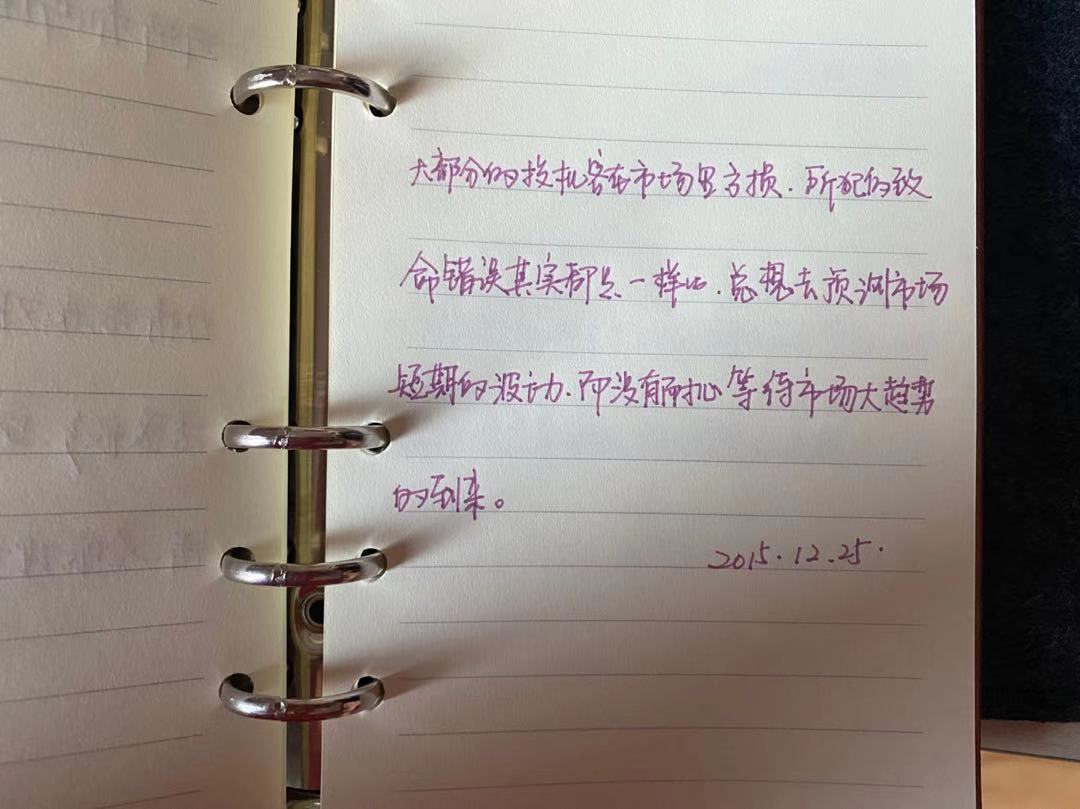 大部分的投机客在市场里亏损.所犯的致
命错误其实都是一样的.总想去预测市场
短期的波动.而没有耐心等待市场大趋势
的到来。
2015.12.25.